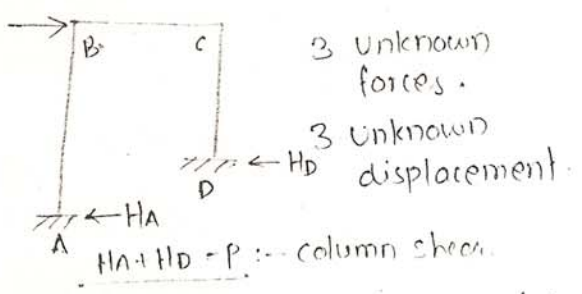 B
C
3 Unknown
forces.
3 Unknown
displacement.
HD
D
HA
A
HA + HD = P :-- column shear.